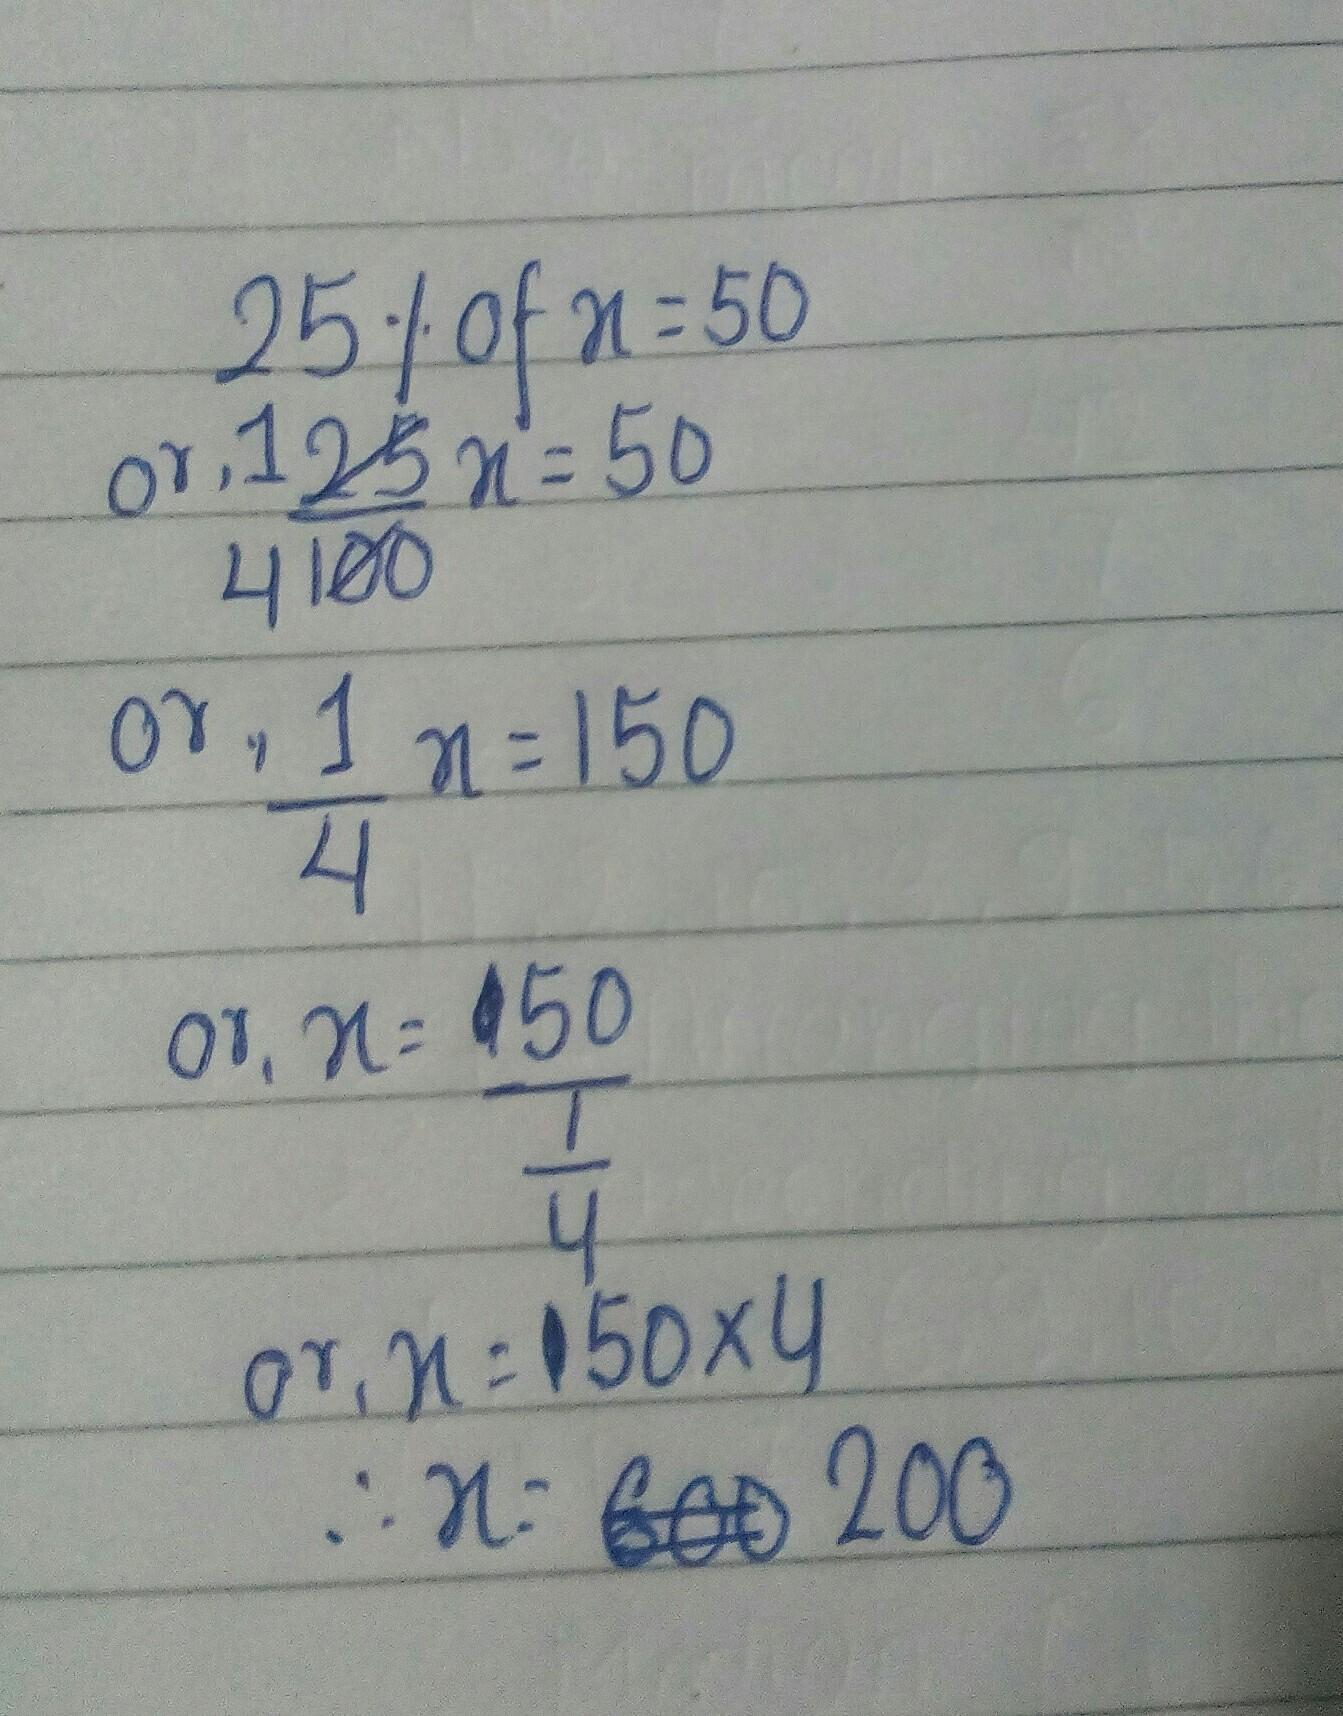 25% of x = 50
or, 1 25/4 100 x = 50
or, 1/4 x = 150
or, x = 50/1/4
or, x = 50 × 4
∴ x = 600 200